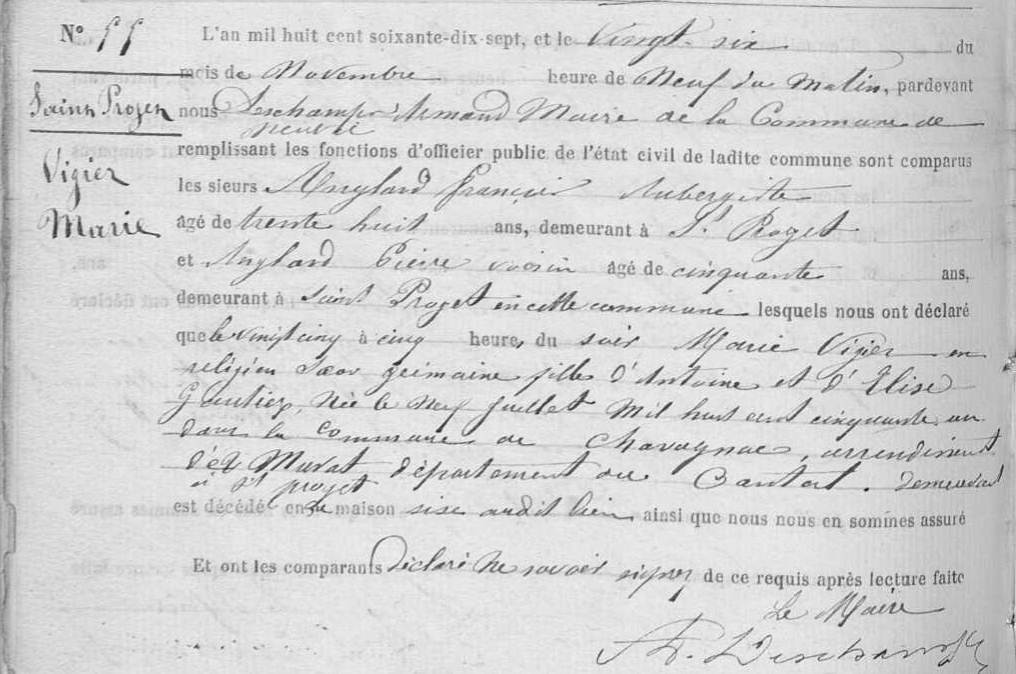 N° 55
Saint Projet
Vigier
Marie
L'an mil huit cent soixante-dix-sept, et le vingt six du
mois de Novembre heure de Neuf du Matin, pardevant
nous Deschamps Armand Maire de la Commune de
remplissant les fonctions d'officier public de l'état civil de ladite commune sont comparus
les sieurs Anglard françois Aubergiste
âgé de trente huit ans, demeurant à St Projet
et Anglard Pierre voisin âgé de cinquante ans,
demeurant à Saint Projet en cette commune lesquels nous ont déclaré
que le vingt cinq à cinq heures du soir Marie Vigier en
religion Sœur Germaine fille d'Antoine et d'Elise
Gautier, Née le Neuf Juillet Mil huit cent cinquante un
dans la Commune de Chavagnac, arrondissmt
de Murat département du Cantal. demeurant
à St projet
est décédé en sa maison sise audit lieu, ainsi que nous nous en sommes assuré
Et ont les comparants déclaré Ne savoir signer de ce requis après lecture faite
Le Maire
A. Deschamps